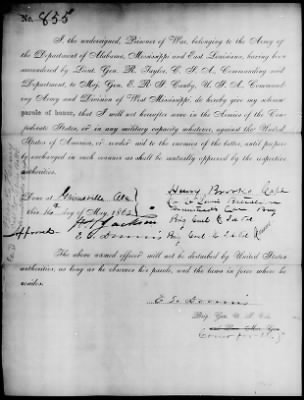 No. 855
I the undersigned, Prisoner of War, belonging to the Army of
the Department of Alabama, Mississippi and East Louisiana, having been
surrendered by Lieut. Gen. R. Taylor, C. S. A., Commanding said
Department, to Maj. Gen. E. R. S. Canby, U. S. A., Command-
ing Army and Division of West Mississippi, do hereby give my solemn
parole of honor, that I will not hereafter serve in the Armies of the Con-
federate States, or in any military capacity whatever, against the United
States of America, or render aid to the enemies of the latter, until properly
exchanged in such manner as shall be mutually approved by the respective
authorities.
Done at Gainesville Ala
this the day of May, 1865
Henry Capt
Approved
W H Jackson
Brig Genl
E. S. Dennis Brig Genl
The above named officer will not be disturbed by United States
authorities, as long as he observes his parole, and the laws in force where he
resides.
E S Dennis
Brig. Gen. U. S. Vols.